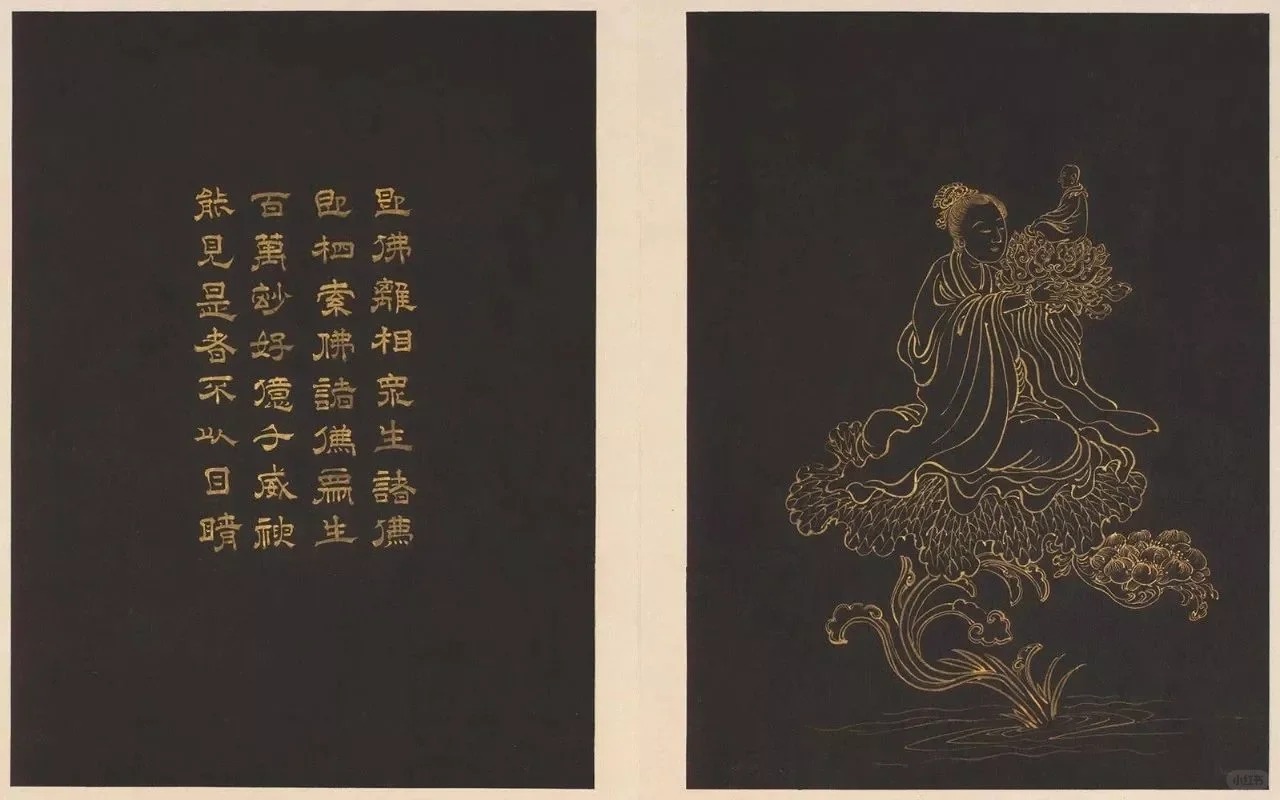 即佛離相眾生諸佛
即相索佛諸佛眾生
百萬妙好億千威神
能見是者不以目睛
小红书